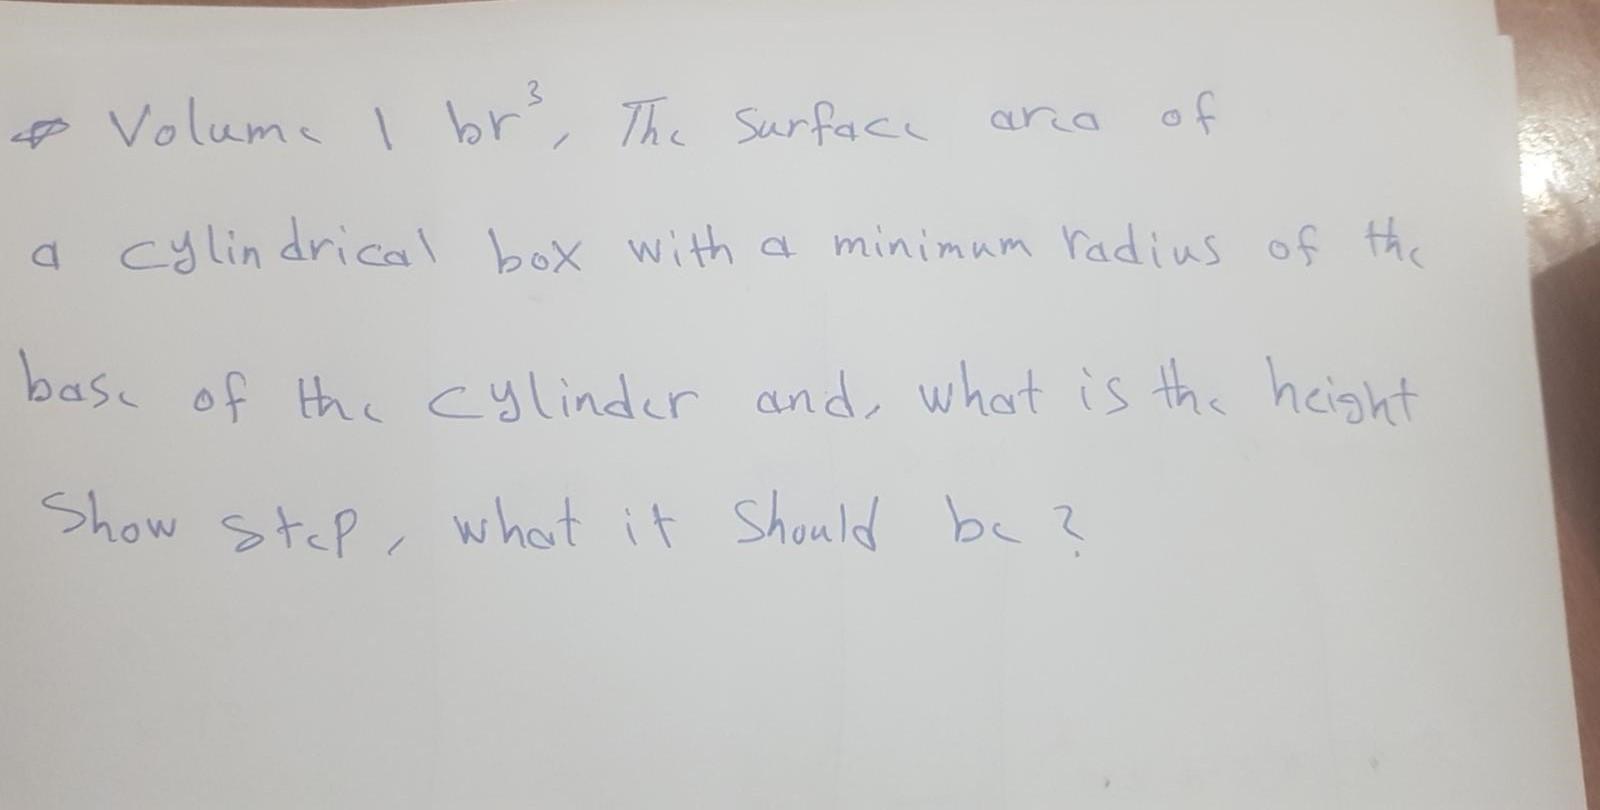 Volume 1 br³, The surface area of
a cylindrical box with a minimum radius of the
base of the cylinder and, what is the height
Show step, what it should be?